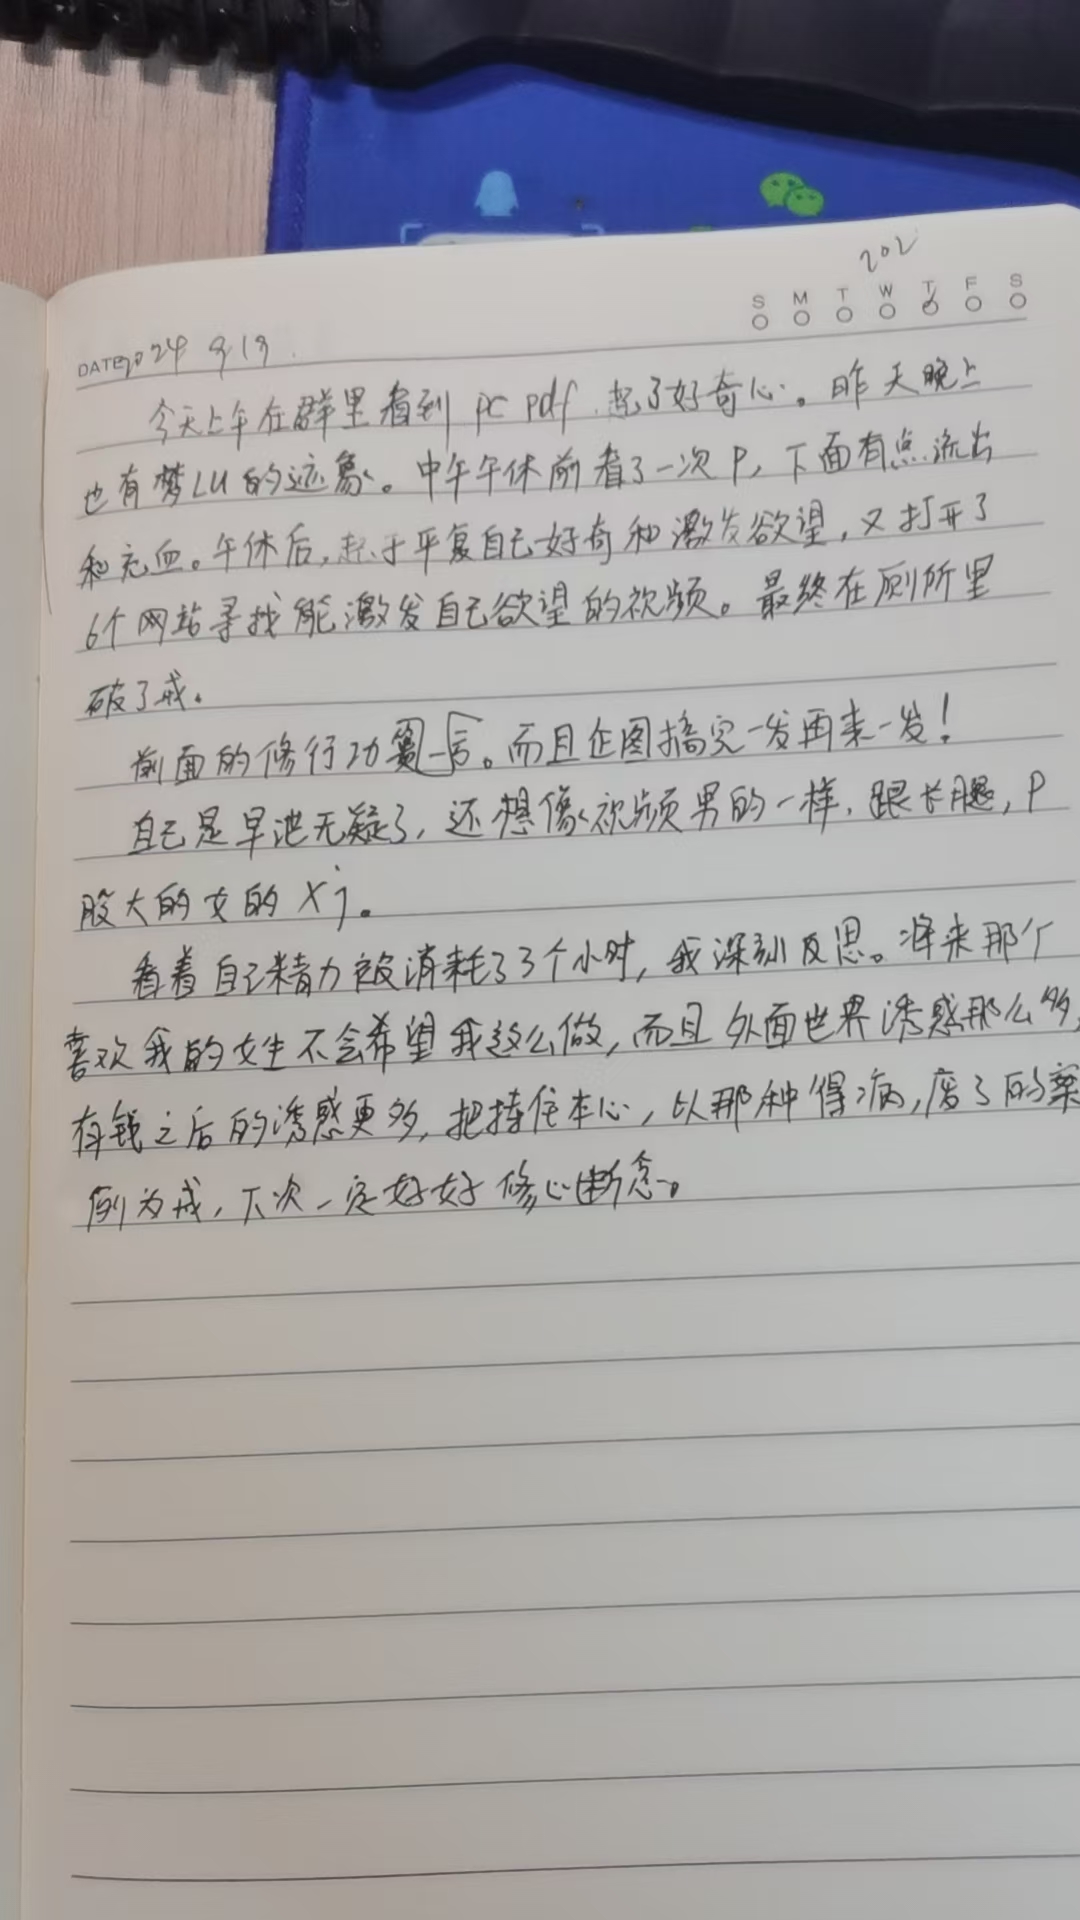 202
S M T W T F S
DATE 2024 9.19.
今天上午在群里看到 pc pdf, 起了好奇心。昨天晚上
也有梦LU的迹象。中午午休前看了一次P,下面有点流出
和充血。午休后,起于平复自己好奇和激发欲望,又打开了
6个网站寻找能激发自己欲望的视频。最终在厕所里
破了戒。
前面的修行功篑一后。而且企图搞完一发再来一发!
自己是早泄无疑了,还想像视频男的一样,跟长腿,P
股大的女的 xj。
看着自己精力被消耗了3个小时,我深刻反思。将来那个
喜欢我的女生不会希望我这么做,而且外面世界诱惑那么多,
有钱之后的诱惑更多,把持住本心,以那种得病,废了的案
例为戒,下次一定好好修心断念。